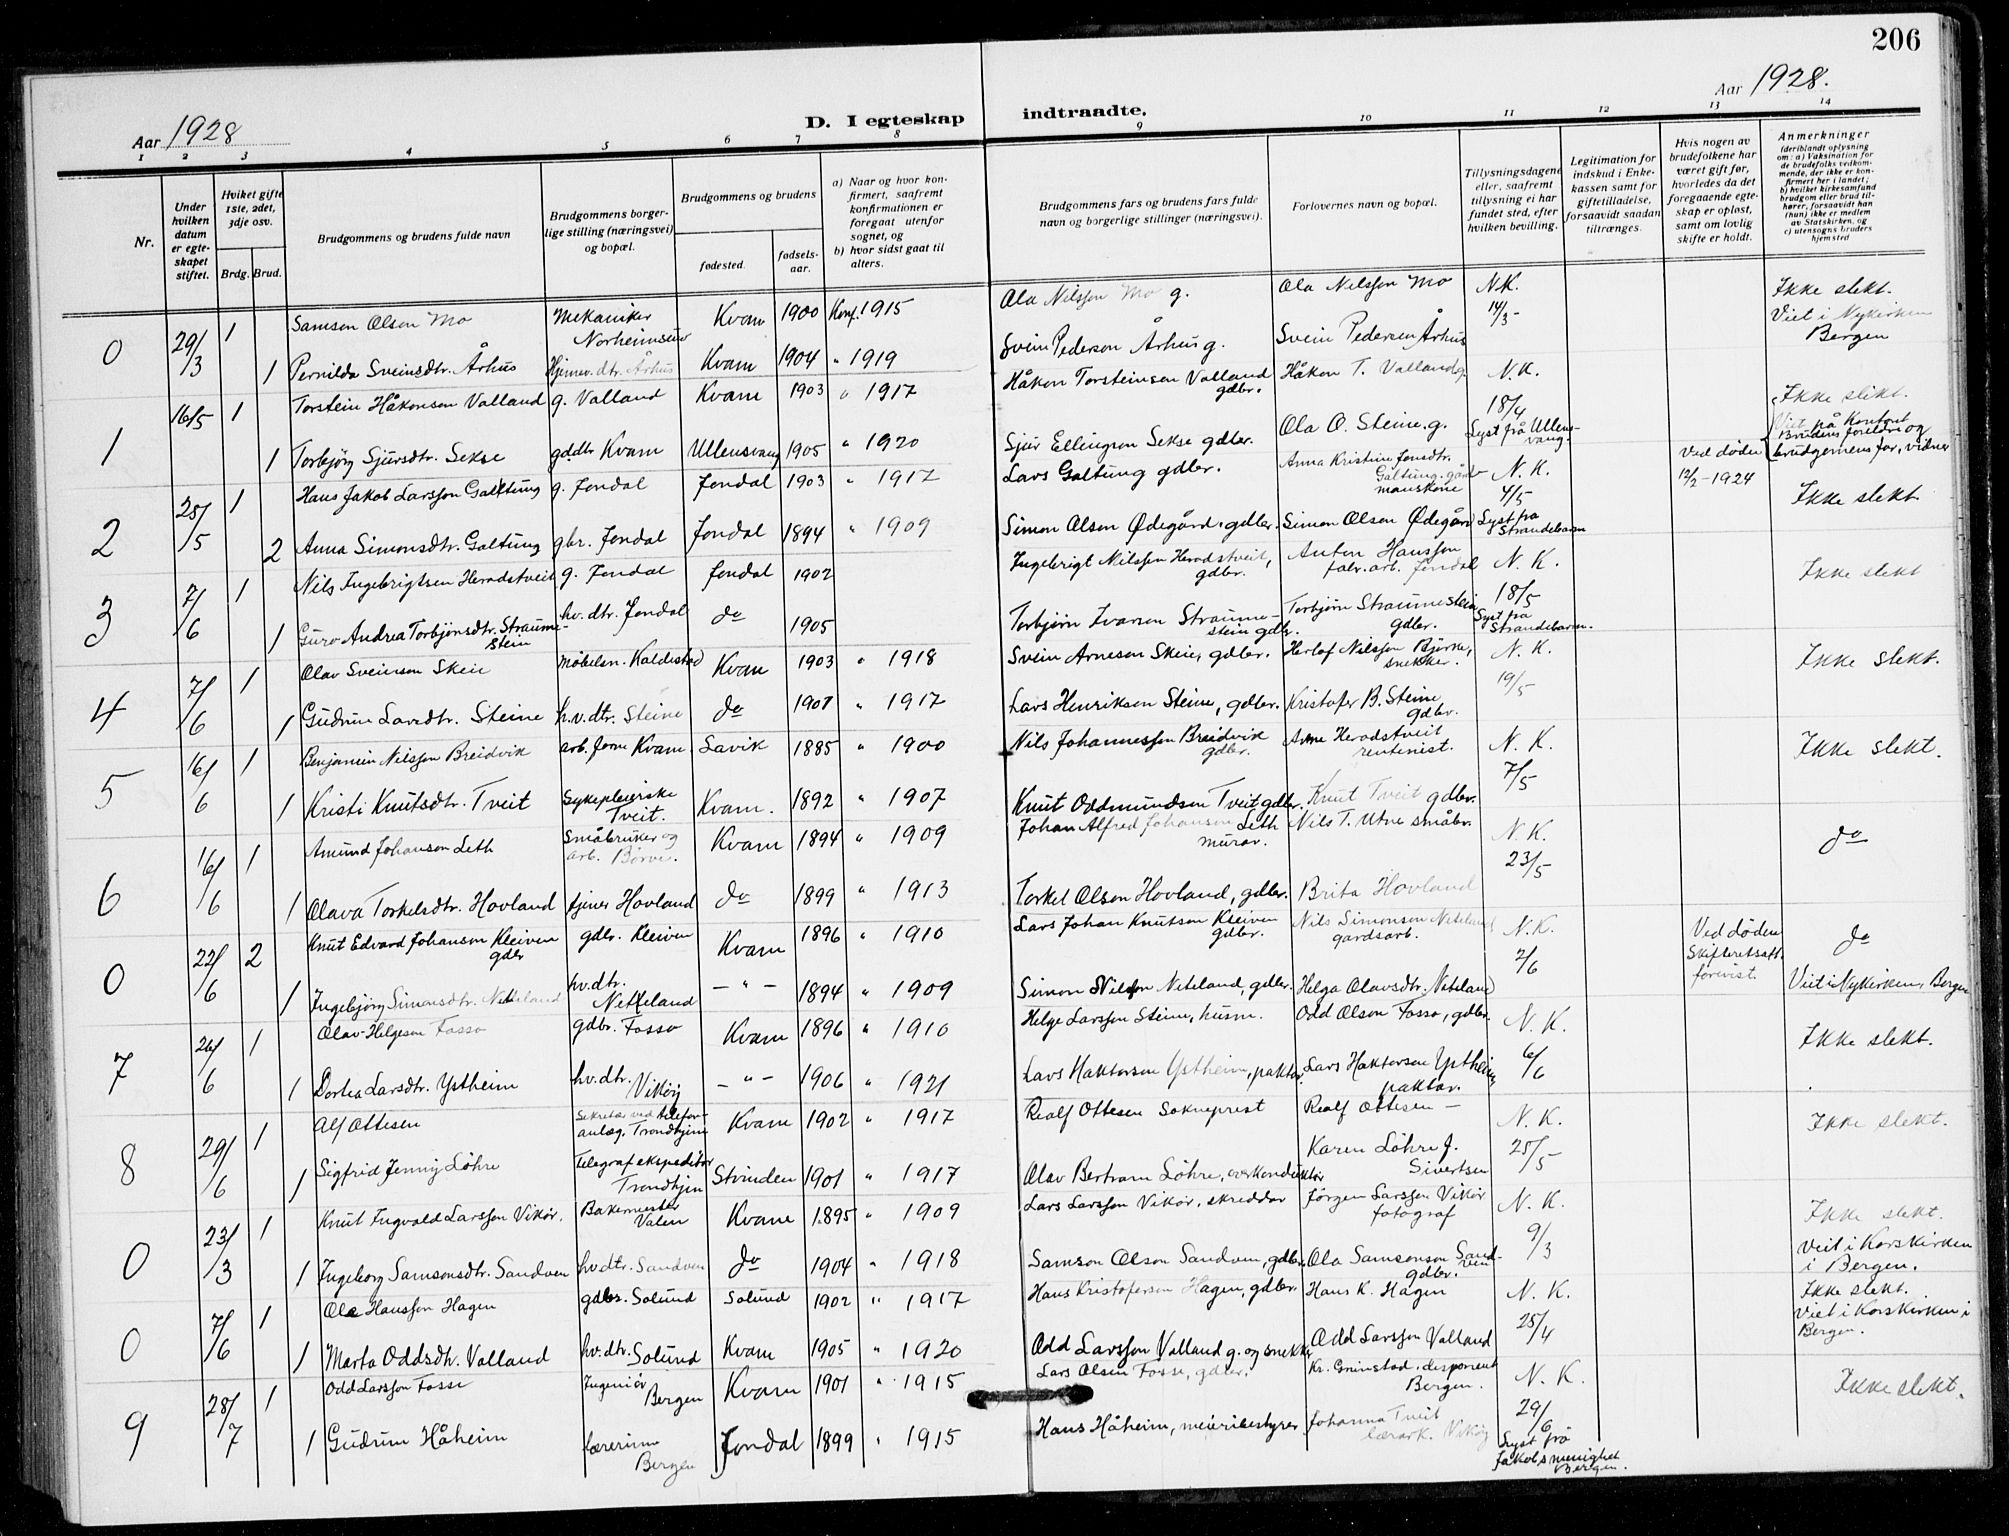 206
Aar 1928
D. I egteskap
indtraadte.
Aar 1928.
1 2 3 4 5 6 7 8 9 10 11 12 13 14
Nr.
Under hvilken datum er egteskapet stiftet.
Hviket gifte 1ste, 2det, 3dje osv.
Brdg. Brud.
Brudgommens og brudens fulde navn
Brudgommens borgerlige stilling (næringsvei) og bopæl.
Brudgommens og brudens
fødested.
fødselsaar.
a) Naar og hvor konfirmert, saafremt konfirmationen er foregaat utenfor sognet, og
b) hvor sidst gaat til alters.
Brudgommens fars og brudens fars fulde navn og borgerlige stillinger (næringsvei).
Forlovernes navn og bopæl.
Tillysningsdagene eller, saafremt tillysning ei har fundet sted, efter hvilken bevilling.
Legitimation for indskud i Enkekassen samt for giftetilladelse, forsaavidt saadan tiltrænges.
Hvis nogen av brudefolkene har været gift før, hvorledes da det foregaaende egteskap er opløst, samt om lovlig skifte er holdt.
Anmerkninger (deriblandt oplysning om: a) Vaksination for de brudefolks vedkommende, der ikke er konfirmert her i landet; b) hvilket kirkesamfund brudgom eller brud tilhører, forsaavidt han (hun) ikke er medlem av Statskirken, og c) utensogns bruders hjemsted
0 29/3 1 Samson Olson Mo Mekaniker Norheimsund Kvam 1900 Konf. 1915 Ola Nilsson Mo g. Ola Nilsson Mo N.K. 14/3- Ikke slekt. Viet i Nykirken Bergen
1 Pernilda Sveinsdtr. Århus Hjemev. dtr. Århus Kvam 1904 " 1919 Svein Pederson Århus g. Svein Pedersen Århus
1 16/5 1 Torstein Håkonson Valland g. Valland Kvam 1903 " 1917 Håkon Torsteinson Valland gdbr. Håkon T. Valland g. N.K. 18/4 Ikke slekt.
1 Torbjørg Sjursdtr. Sekse gdbr Kvam Ullensvang 1905 " 1920 Sjur Ellingson Sekse gdbr. Ola O. Steine. g. Lyst frå Ullensvang. Viet på Kontoret Brudens foreldre og brudgomens far, vidner
2 25/5 1 Hans Jakob Larsson Galtung g. Jondal Jondal 1903 " 1917 Lars Galtung gdbr. Anna Kristine Jonsdtr. Galtung. gårdmanskone N.K. 4/5 Ved døden 12/2-1924 Ikke slekt
2 Anna Simonsdtr. Galtung gbr. Jondal Jondal 1894 " 1909 Simon Olson Ødegård. gdbr. Simon Olson Ødegård Lyst fra Strandebarm
3 7/6 1 Nils Ingebrigtsen Heradstveit g. Jondal Jondal 1902 Ingebrigt Nilsson Heradstveit, gdbr. Anton Hansson fabr. arb. Jondal N.K. 18/5 Ikke slekt
1 Guro Andrea Torbjønsdtr. Straumestein hv. dtr. Jondal do 1905 Torbjørn Ivarson Straumestein gdbr. Torbjørn Straumestein gdbr. Lyst fra Strandebarm.
4 7/6 1 Olav Sveinson Skeie møbelsn. Kaldestad Kvam 1903 " 1918 Svein Arneson Skeie, gdbr. Herlof Nilsson Bjørke, snekker. N.K. 19/5 Ikke slekt.
1 Gudrun Larsdtr. Steine h.v. dtr. Steine do 1901 " 1917 Lars Henrikson Steine, gdbr. Kristofer B. Steine gdbr.
5 16/6 1 Benjamin Nilsson Breidvik arb. form Kvam Lavik 1885 " 1900 Nils Johannessen Breidvik gdbr. Arne Heradstveit rentenist. N.K. 7/5 Ikke slekt.
1 Kristi Knutsdtr. Tveit Sykepleierske Tveit. Kvam. 1892 " 1907 Knut Oddmundson Tveit gdbr. Knut Tveit gdbr.
6 16/6 1 Amund Johanson Leth Småbruker og arb. Børve. Kvam 1894 " 1909 Johan Alfred Johanson Leth murar. Nils T. Utne småbr. N.K. 23/5 do
1 Olava Torkelsdtr. Hovland tjener Hovland do 1899 " 1913 Torkel Olson Hovland, gdbr. Brita Hovland
0 22/6 2 Knut Edvard Johanson Kleiven gdbr gdbr. Kleiven Kvam 1896 " 1910 Lars Johan Knutson Kleiven gdbr. Nils Simonson Neteland gardsarb. N.K. 2/6 Ved døden Skifteretsatt. forevist. do
1 Ingebjørg Simonsdtr. Netteland hv. dtr. Netteland - " - 1894 " 1909 Simon Nilson Neteland, gdbr. Helga Olavsdtr. Neteland Viet i Nykirken, Bergen
7 26/6 1 Olav Helgeson Fosso gdbr. Fosso Kvam 1896 " 1910 Helge Larsson Steine, husm. Odd Olson Fosso, gdbr. N.K. 6/6 Ikke slekt.
1 Dortea Larsdtr. Ystheim hv. dtr. Vikøy - " - 1906 " 1921 Lars Haktorson Ystheim, paktar. Lars Haktorson Ystheim paktar.
8 29/6 1 Alf Ottesen Sekretær ved telefonanlæg. Trondhjem Kvam 1902 " 1917 Realf Ottesen Sokneprest Realf Ottesen - N.K. 25/5 Ikke slekt.
1 Sigfrid Jenny Løhre Telegrafekspeditør Trondhjem Strinden 1901 " 1917 Olav Bertram Løhre, overkonduktør Karen Løhre f. Sivertsen
0 23/3 1 Knut Ingvald Larsson Vikør. Bakermester Valen Kvam 1895 " 1909 Lars Larsson Vikør, skreddar Jørgen Larsson Vikør fotograf N.K. 9/3 Ikke slekt.
1 Ingeborg Samsonsdtr. Sandven hv. dtr. Sandven do 1904 " 1918 Samson Olson Sandven, gdbr. Ola Samsonson Sandven gdbr. Viet i Korskirken i Bergen.
0 7/6 1 Ola Hansson Hagen gdbr. Solund Solund 1902 " 1917 Hans Kristoferson Hagen, gdbr. Hans K. Hagen N.K. 25/4 Ikke slekt. Viet i Korskirken i Bergen.
1 Marta Oddsdtr. Valland hv. dtr. Solund Kvam 1905 " 1920 Odd Larsson Valland g. og snekker Odd Larsson Valland
9 28/7 1 Odd Larsson Fosse Ingeniør Bergen Kvam 1901 " 1915 Lars Olsen Fosse, gdbr. Kr. Grimstad, disponent Bergen. N.K. 29/6 Ikke slekt.
1 Gudrun Håheim lærerinne Bergen Jondal 1899 " 1915 Hans Håheim, meieribestyrer Johanna Tveit lærark. Vikøy Lyst frå Jakobs menighet Bergen.